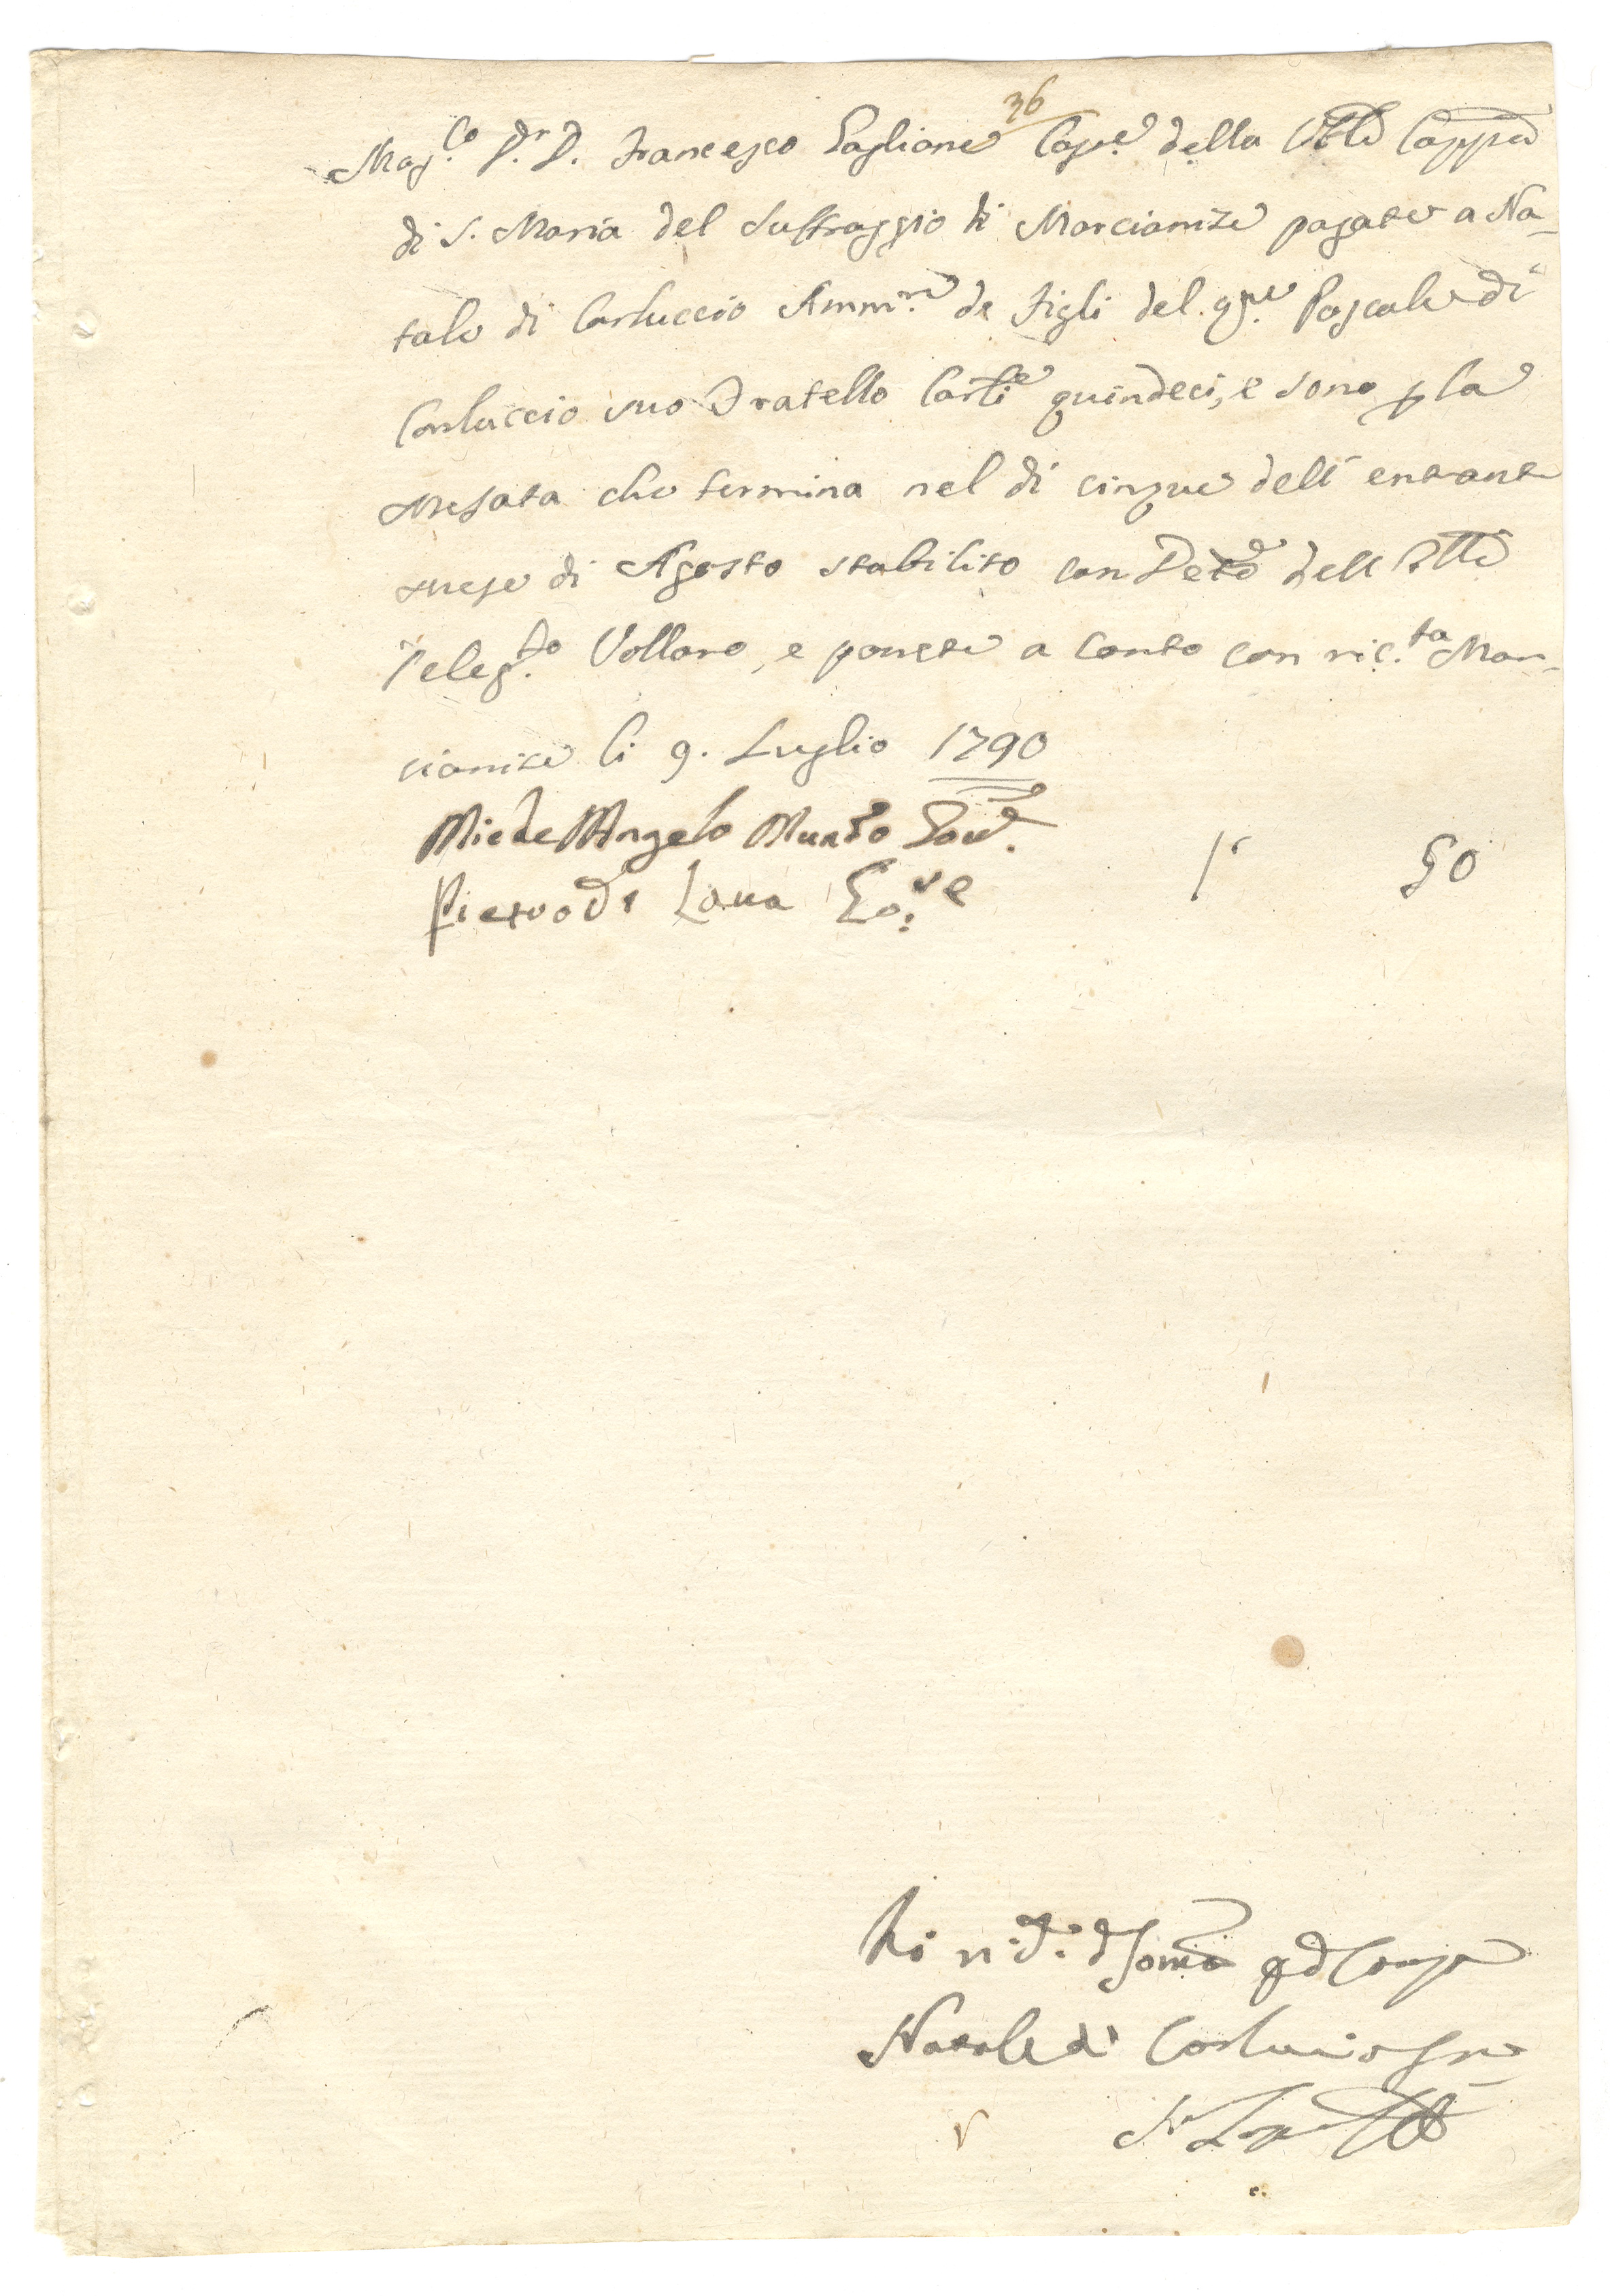 36
Mag.co D.r D. Francesco Paglione Cass.e della Ven.le Capp.a
di S. Maria del Suffraggio di Marcianise pagate a Na-
tale di Carluccio Amm.re de figli del q.m Pascale di
Carluccio suo Fratello Carl.i quindeci, e sono p la
mesata che termina nel dì cinque dell' entrante
mese di Agosto stabilito con Dec.to dell' Ill.e
Deleg.to Vollaro, e ponete a conto con ric.ta Mar-
cianise li 9. Luglio 1790
MicheleAngelo Munzo Gov.e
Pietro di Laua Go.re
1" 50
Ho ric.to d Soma p d Causa
Natale di Carluccio